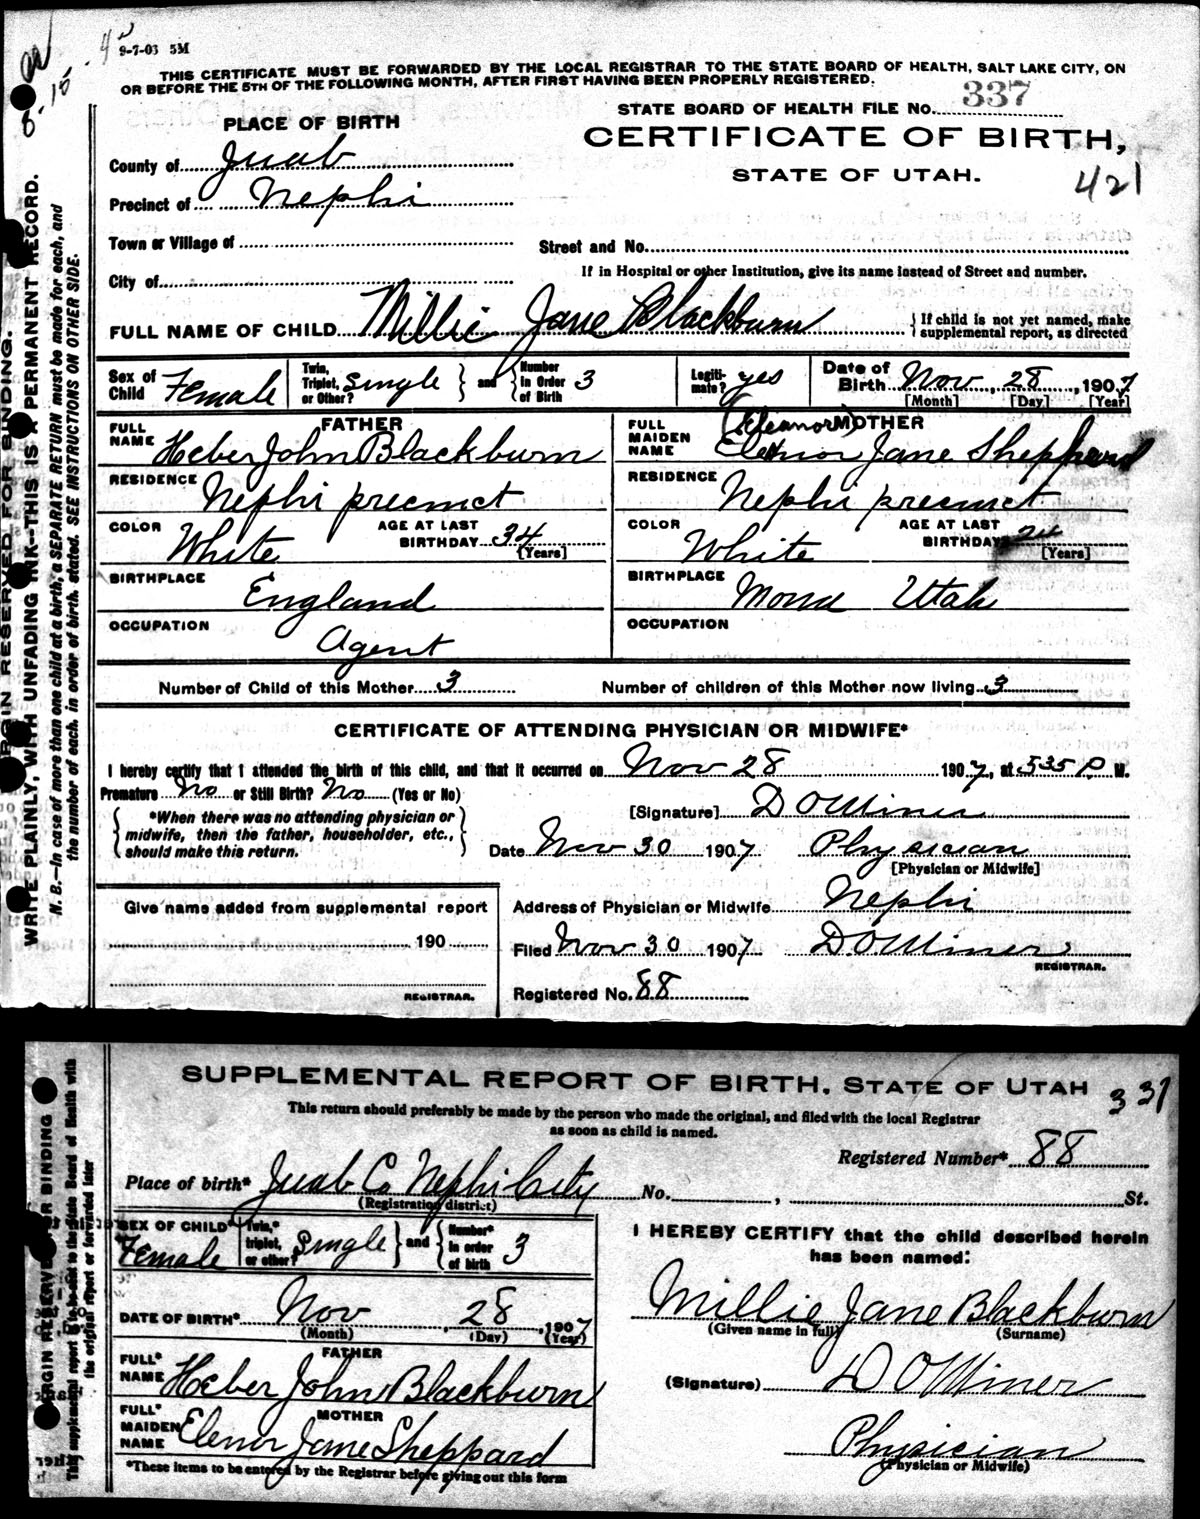 9-7-03 5M
THIS CERTIFICATE MUST BE FORWARDED BY THE LOCAL REGISTRAR TO THE STATE BOARD OF HEALTH, SALT LAKE CITY, ON
OR BEFORE THE 5TH OF THE FOLLOWING MONTH, AFTER FIRST HAVING BEEN PROPERLY REGISTERED.
STATE BOARD OF HEALTH FILE NO. 337
PLACE OF BIRTH
CERTIFICATE OF BIRTH,
STATE OF UTAH.
421
County of Juab
Precinct of Nephi
Town or Village of
Street and No.
City of
If in Hospital or other Institution, give its name instead of Street and number.
FULL NAME OF CHILD Millie Jane Blackburn
If child is not yet named, make
supplemental report, as directed
Sex of Child Female
Twin, Triplet, or Other? Single and Number in Order of Birth 3
Legitimate? yes
Date of Birth Nov 28, 1907
[Month] [Day] [Year]
FATHER
FULL NAME Heber John Blackburn
RESIDENCE Nephi precinct
COLOR White AGE AT LAST BIRTHDAY 34 [Years]
BIRTHPLACE England
OCCUPATION Agent
MOTHER
(Eleanor)
FULL MAIDEN NAME Elenor Jane Sheppard
RESIDENCE Nephi precinct
COLOR White AGE AT LAST BIRTHDAY 24 [Years]
BIRTHPLACE Mona Utah
OCCUPATION
Number of Child of this Mother 3 Number of children of this Mother now living 3
CERTIFICATE OF ATTENDING PHYSICIAN OR MIDWIFE*
I hereby certify that I attended the birth of this child, and that it occurred on Nov 28 1907, at 535 P. M.
Premature No or Still Birth? No (Yes or No)
*When there was no attending physician or
midwife, then the father, householder, etc.,
should make this return.
[Signature] D O Miner
Date Nov 30 1907 Physician
[Physician or Midwife]
Give name added from supplemental report
190
REGISTRAR.
Address of Physician or Midwife Nephi
Filed Nov 30 1907 D. O. Miner
REGISTRAR.
Registered No. 88
MARGIN RESERVED FOR BINDING.
WRITE PLAINLY, WITH UNFADING INK--THIS IS A PERMANENT RECORD.
N. B.--In case of more than one child at a birth, a SEPARATE RETURN must be made for each, and
the number of each, in order of birth, stated. SEE INSTRUCTIONS ON OTHER SIDE.
SUPPLEMENTAL REPORT OF BIRTH, STATE OF UTAH
337
This return should preferably be made by the person who made the original, and filed with the local Registrar
as soon as child is named.
Registered Number* 88
Place of birth* Juab Co Nephi City No. , St.
(Registration district)
SEX OF CHILD* Female
Twin,* triplet, or other? Single and Number* in order of birth 3
DATE OF BIRTH* Nov 28, 1907
(Month) (Day) (Year)
FATHER
FULL* NAME Heber John Blackburn
MOTHER
FULL* MAIDEN NAME Elenor Jane Sheppard
*These items to be entered by the Registrar before giving out this form
I HEREBY CERTIFY that the child described herein
has been named:
Millie Jane Blackburn
(Given name in full) (Surname)
(Signature) D O Miner
Physician
(Physician or Midwife)
MARGIN RESERVED FOR BINDING
This supplemental report to be sent to the State Board of Health with
the original report or forwarded later